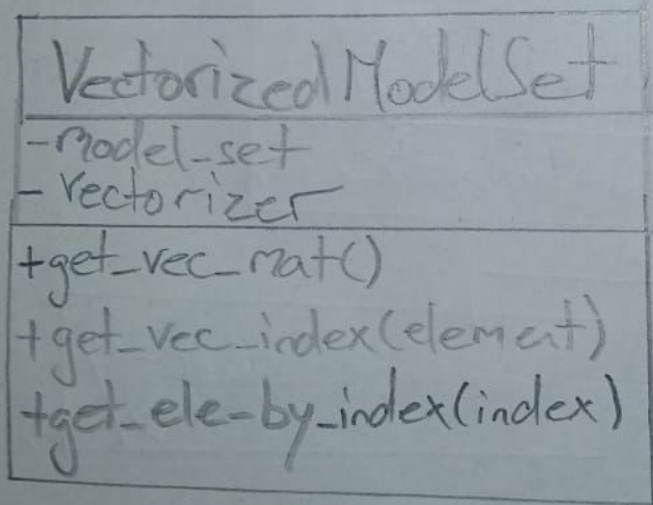 VectorizedModelSet
-model_set
- vectorizer
+get_vec_mat()
+get_vec_index(element)
+get_ele_by_index(index)